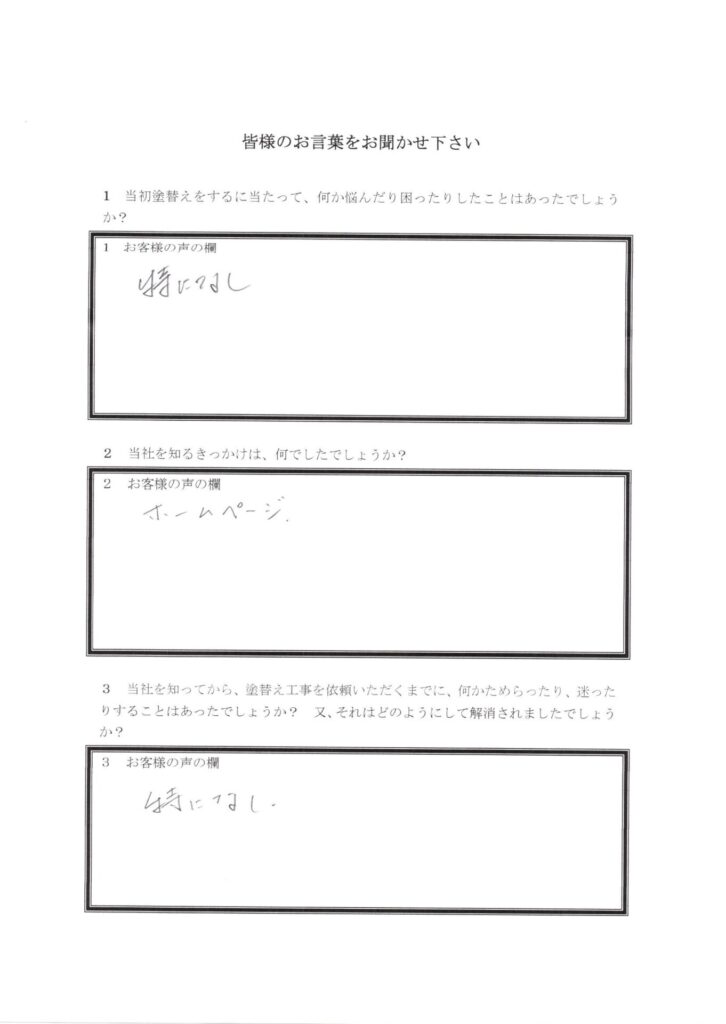 皆様のお言葉をお聞かせ下さい
1　当初塗替えをするに当たって、何か悩んだり困ったりしたことはあったでしょう
か？
1　お客様の声の欄
特になし
2　当社を知るきっかけは、何でしたでしょうか？
2　お客様の声の欄
ホームページ.
3　当社を知ってから、塗替え工事を依頼いただくまでに、何かためらったり、迷った
りすることはあったでしょうか？　又、それはどのようにして解消されましたでしょう
か？
3　お客様の声の欄
特になし.